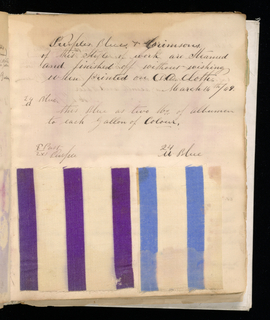 Purples Blues & Crimsons
of this style of work are Steamed
and finished off without washing,
when printed on Cloths
March 16th/58.
Blue
This Blue as two lbs of albumen
to each Gallon of Colour.
Purple
Blue